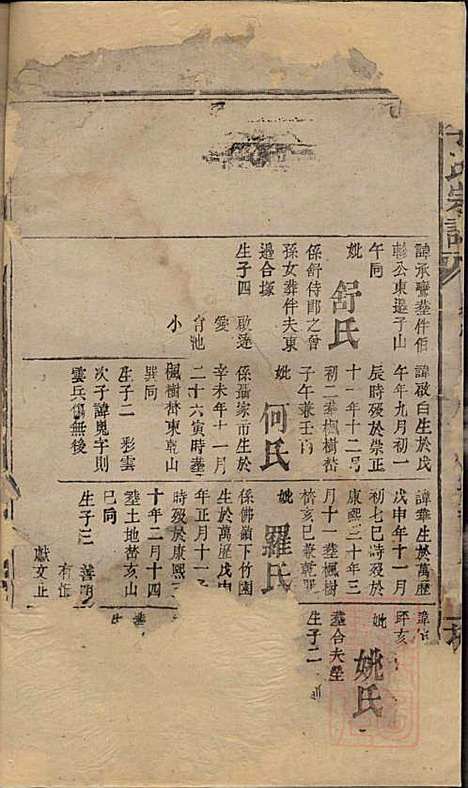 氏宗譜
諱承鸞葬伴伯
翰公東邊子山
午同
妣 舒氏
係舒侍郎之曾
孫女葬伴夫東
邊合塚
生子四 啟逵
愛
台池
小
諱啟白生於戊
午年九月初一
辰時歿於崇正
十一年十二月
初二葬楓樹嶅
子午兼壬丙
妣 何氏
係攝家市生於
辛未年十一月
二十六寅時葬
楓樹嶅東乾山
巽同
生子二 彩雲
次子諱鬼字則
雲兵傷無後
諱華生於萬歷
戊申年十一月
初七巳時歿於
康熙三十年三
月十一葬楓樹
嶅亥巳兼乾巽
妣 羅氏
係佛嶺下竹園
生於萬歷戊申
年正月十一
時歿於康熙三
十年二月十四
葬土地嶅亥山
巳同
生子三 善明
有恒
獻文止
諱
妣 姚氏
葬合夫塋
生子二